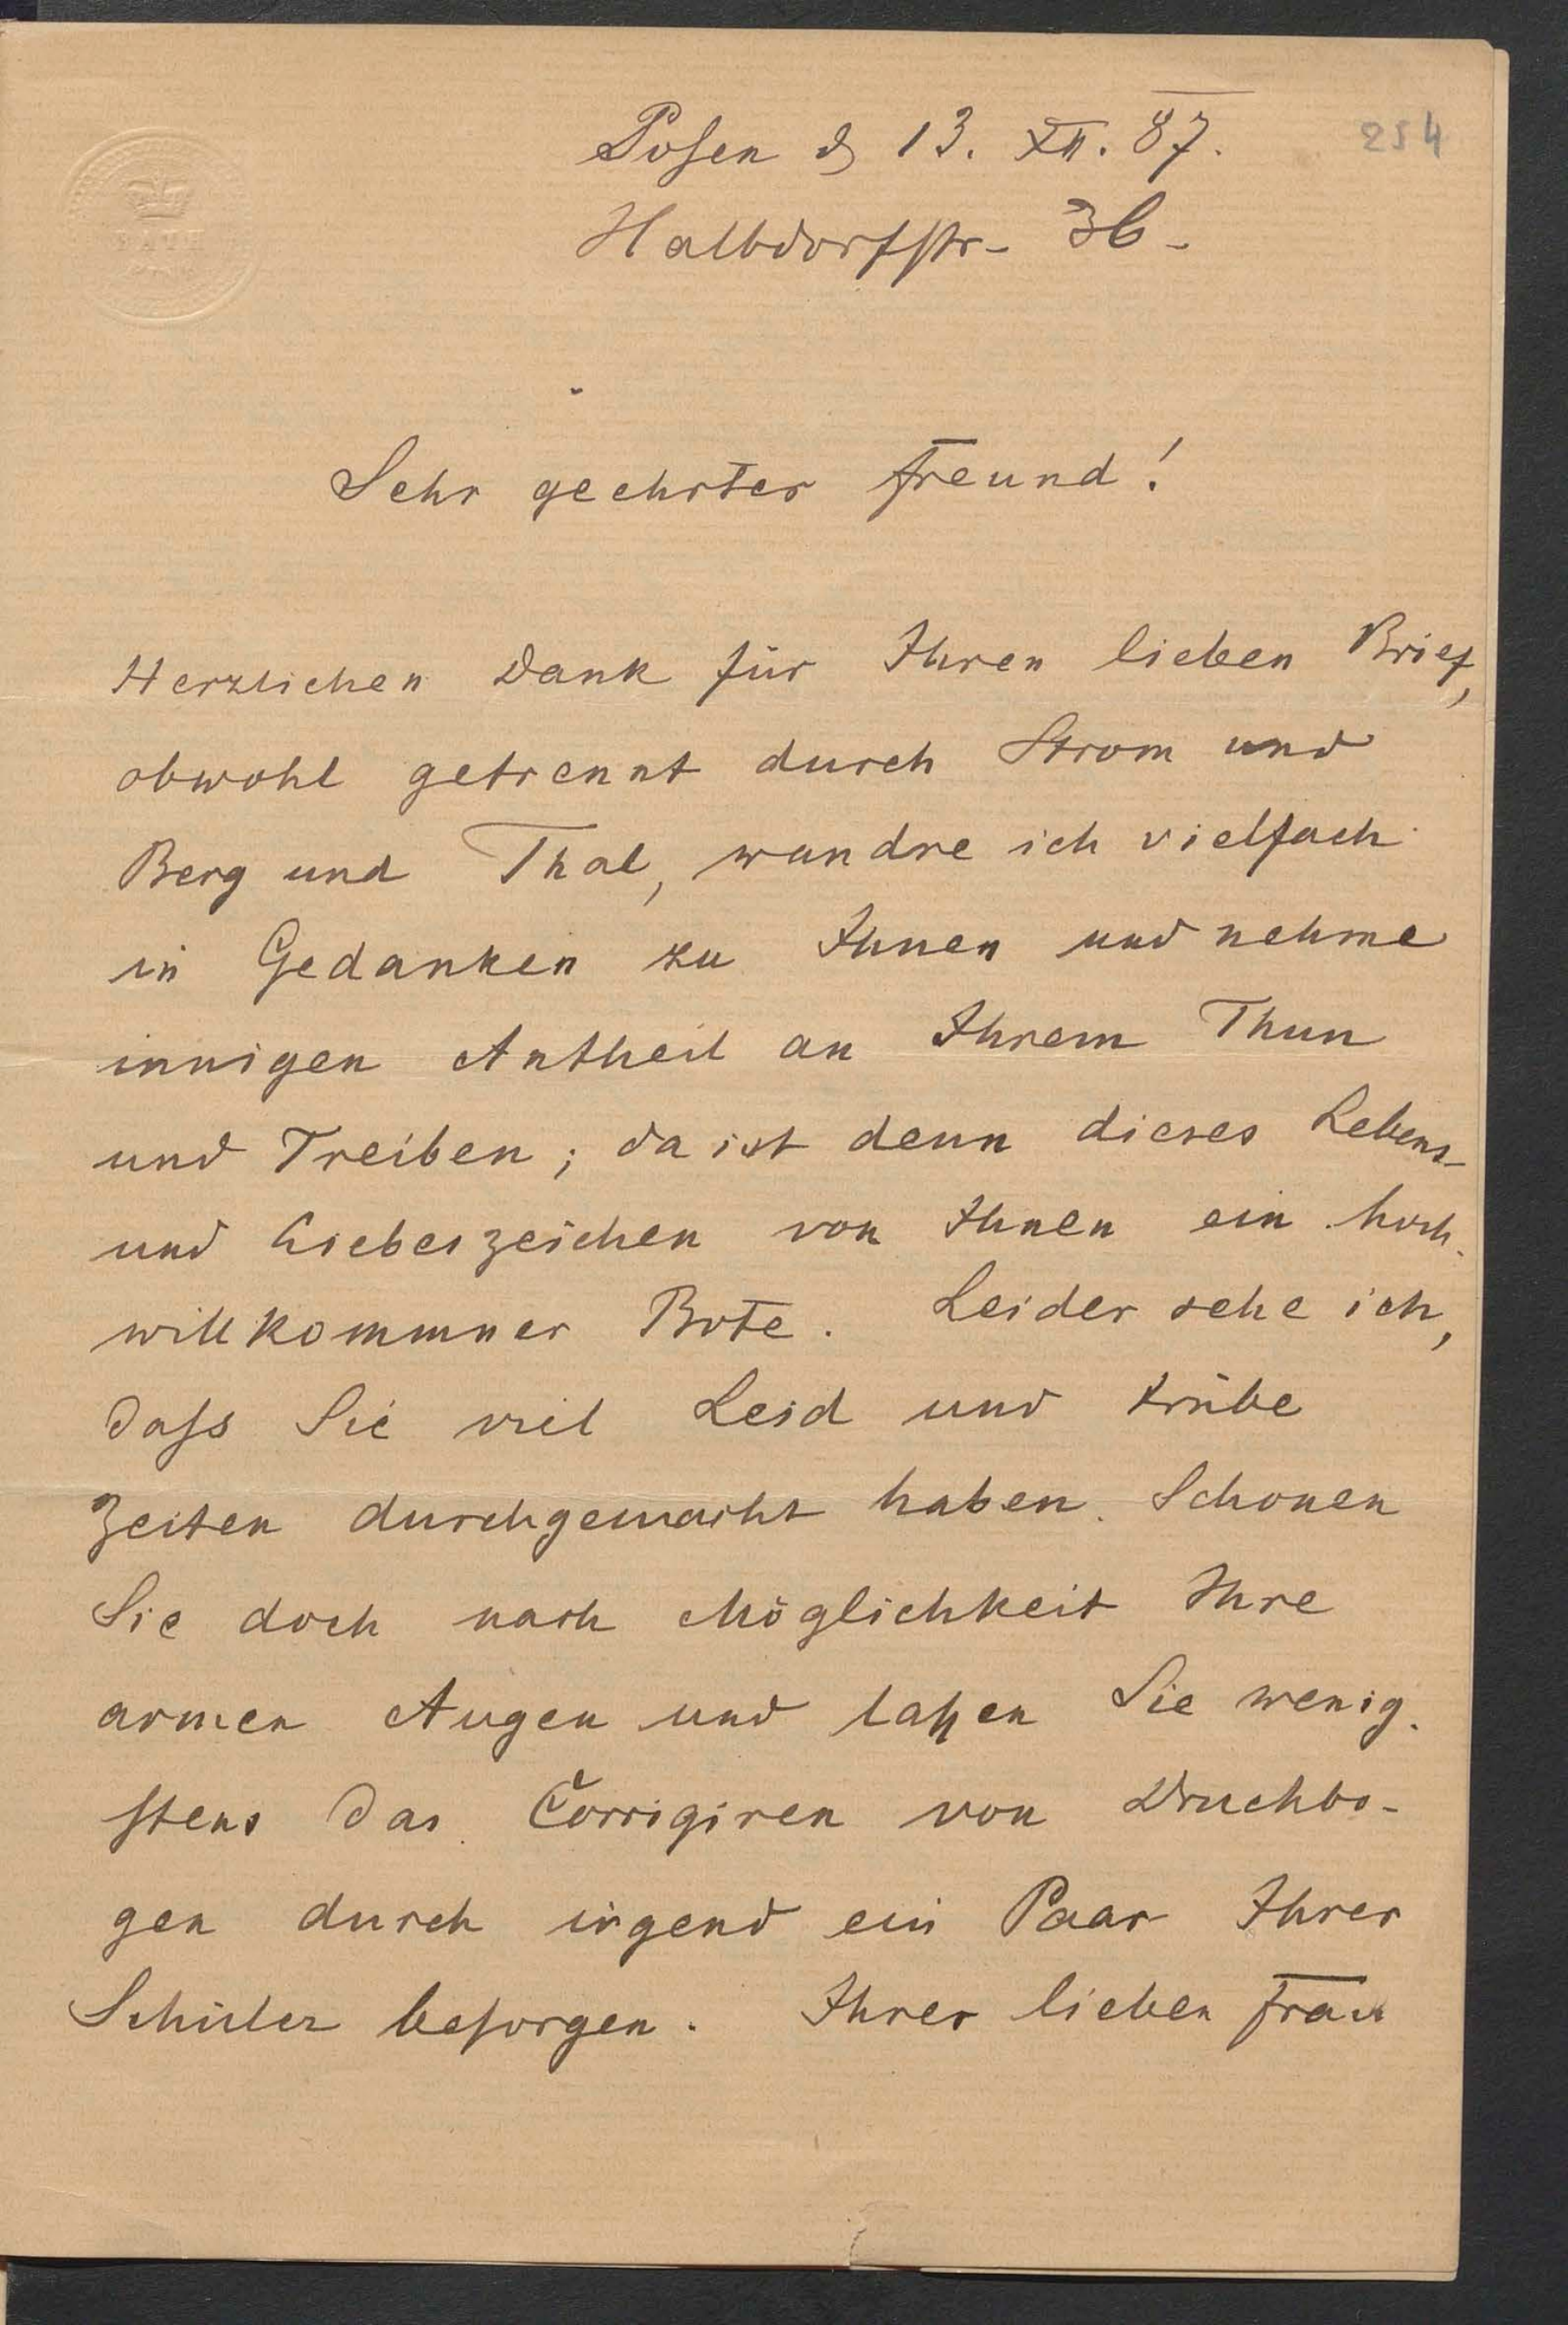 Posen d 13. XII. 87.
254
Halbdorfstr- 36-
BATH
Sehr geehrter Freund!
Herzlichen Dank für Ihren lieben Brief,
obwohl getrennt durch Strom und
Berg und Thal, wandre ich vielfach
in Gedanken zu Ihnen und nehme
innigen Antheil an Ihrem Thun
und Treiben; da ist denn dieses Lebens-
und Liebeszeichen von Ihnen ein hoch-
willkommner Bote. Leider sehe ich,
dass Sie viel Leid und trübe
Zeiten durchgemacht haben. Schonen
Sie doch nach Möglichkeit Ihre
armen Augen und lassen Sie wenig-
stens das Corrigiren von Druckbo-
gen durch irgend ein Paar Ihrer
Schüler besorgen. Ihrer lieben Frau